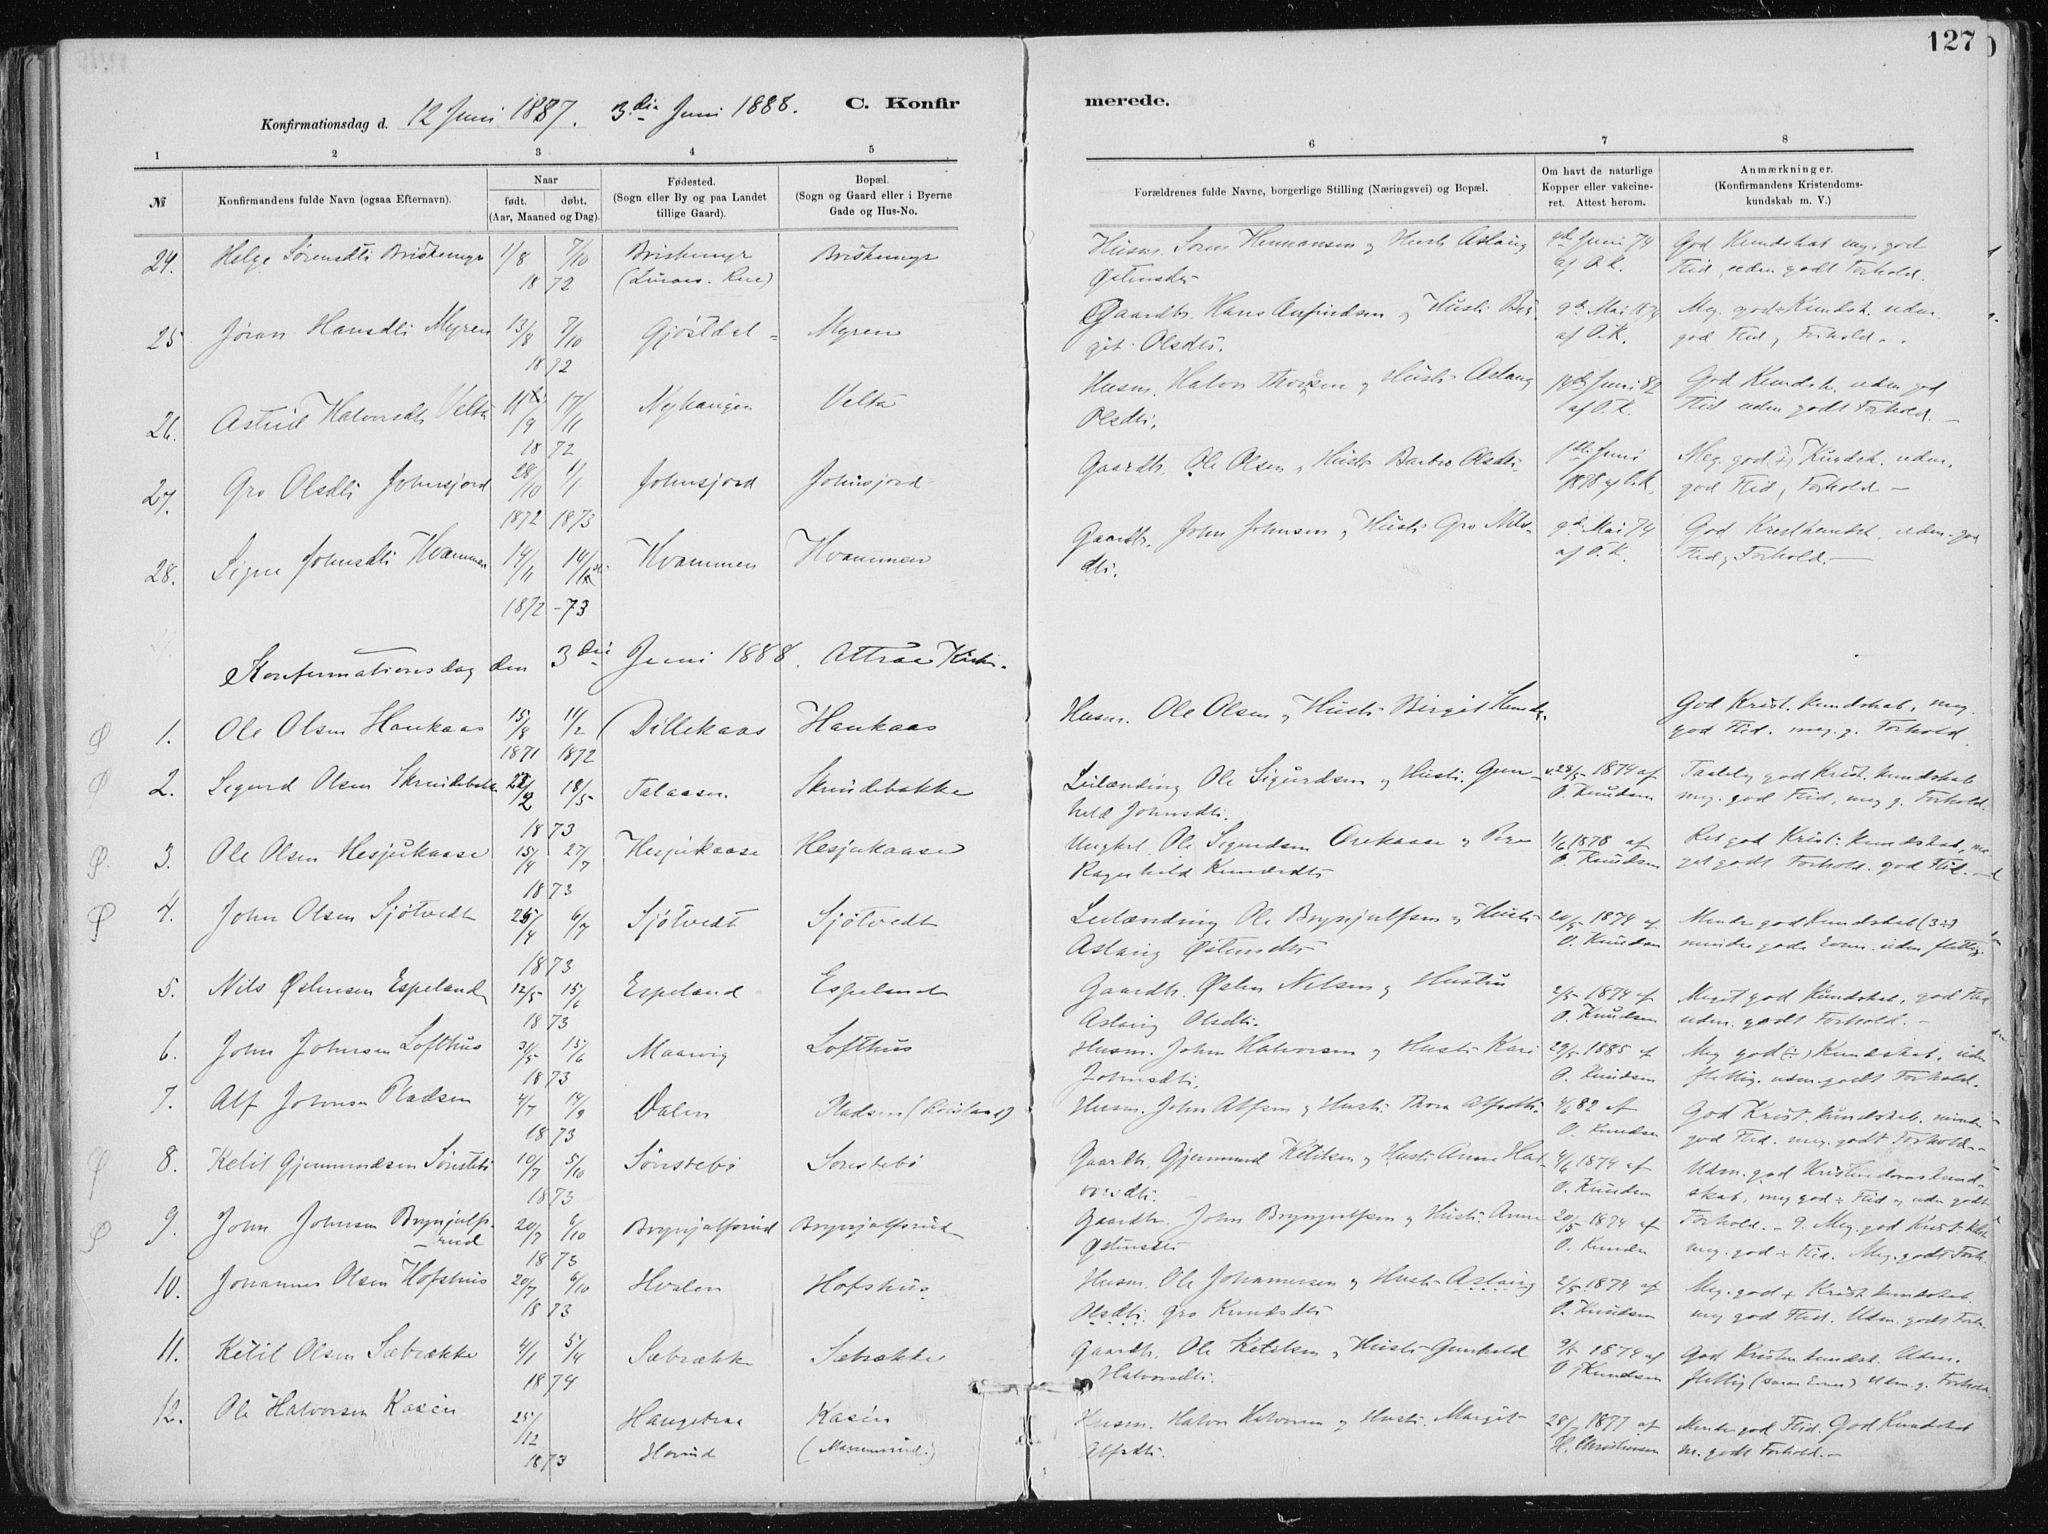 127
C. Konfirmerede.
Konfirmationsdag d. 12 Juni 1887. 3die Juni 1888.
1 2 3 4 5 6 7 8
№
Konfirmandens fulde Navn (ogsaa Efternavn).
Naar
født. døbt.
(Aar, Maaned og Dag).
Fødested.
(Sogn eller By og paa Landet
tillige Gaard).
Bopæl.
(Sogn og Gaard eller i Byerne
Gade og Hus-No.
Forældrenes fulde Navne, borgerlige Stilling (Næringsvei) og Bopæl.
Om havt de naturlige
Kopper eller vakcine-
ret. Attest herom.
Anmærkninger.
(Konfirmandens Kristendoms-
kundskab m. V.)
24. Helge Sørensdtr Briskemyr 1/8 7/10 1872 Briskemyr Briskemyr
Husm. Soren Hermansen og Hustr Aslaug
af O.K.
God Kundskab meg. god
Flid, uden godt Forhold.
25 Jøran Hansdtr Myren 13/8 7/10 1872 Gjøsldal Myren
Gaardbr. Hans Anfindsen og Hustr. Bir-
git Olsdtr.
9de Mai 1874
af O.K.
Meg. god Kundsk. udm.
god Flid, Forhold.
26. Astrid Halvorsdtr Velta 17/11 1872 Nyhaugen Velta
Husm. Halvor og Hustr. Aslaug
Olsdtr.
Juni 82
af O.K.
God Kundsk. uden god
Flid uden godt Forhold. —
27. Gro Olsdtr Johnsjord 28/10 1/1 1872 1873 Johnsjord Johnsjord
Gaardbr. Ole Olsen og Hustr Barbro Olsdtr.
Juni
1878 af O.K.
Meg. god (÷) Kundsk. uden.
god Flid, Forhold —
28. Signe Johnsdtr Hvammen 14/11 1872 -73 Hvammen Hvammen
Gaardbr. John Johnsen og Hustr. Gro Nils-
dtr.
9de Mai 74
af O.K.
God Kristkundsk. uden. god
Flid, Forhold. —
Konfirmationsdag den 3die Juni 1888. Attraa Kirke.
1. Ole Olsen Haukaas 15/8 11/2 1871 1872 Dillekaas Haukaas
Husm. Ole Olsen og Hustr. Birgit
God Krist. kundskab, meg.
god Flid. meg. g. Forhold
2. Sigurd Olsen Skrindebakke 18/5 1873 Talaasen. Skrindebakke
Leilænding Ole Sigurdsen og Hustr. Gun-
hild Johnsdtr.
28/5 1874 af
O. Knudsen
god Krist. kundskab
meg. god Flid, meg g. Forhold.
3. Ole Olsen Hesjukaase 15/4 27/7 1873 Hesjukaase Hesjukaase
Ungkrl. Ole Sigurdsen og Pige
Ragnhild
1/6 1878 af
O. Knudsen
Ret god Krist: kundskab, me-
get godt Forhold. god Flid. —
4. John Olsen Sjøtvedt 25/4 6/7 1873 Sjøtvedt Sjøtvedt
Leilænding Ole Brynjulfsen og Hustr.
Aslaug
20/5 1874 af
O. Knudsen
Mindre god Kundskab (3÷)
mindre gode Evner. uden flittig.
5. Nils Østensen Espeland 12/5 15/6 1873 Espeland Espeland
Gaardbr. Østen Nilsen og Hustru
Aslaug Olsdtr.
2/5 1874 af
O. Knudsen
Meget god Kundskab, god Flid
uden. godt Forhold. —
6. John Johnsen Lofthus 31/5 15/6 1873 Maarvig Lofthus
Husm. John Halvorsen og Hustr. Kari
Johnsdtr.
29/5 1885 af
O. Knudsen
Meg god (÷) Kundskab, uden
flittig. uden. godt Forhold.
7. Alf Johnsen Pladsen 4/7 14/9 1873 Dalen Pladsen
Husm. John Alfsen og Hustr. Thora Alfsdtr.
4/6 82 af
O. Knudsen
God Krist. kundskab. mindre
god Flid. meg. godt Forhold. —
8. Ketil Gjermundsen Sønstebø 10/7 5/10 1873 Sønstebø Sønstebø
Gaardbr. Gjermund Ketilsen og Hustr. Anne Hal-
vorsdtr.
4/6 1874 af
O. Knudsen
Udm. god Kristendomskund-
skab, meg god ÷ Flid og uden godt
Forhold. —
9. John Johnsen Brynjulfs-
rud 20/7 6/10 1873 Brynjulfsrud Brynjulfsrud
Gaardbr. John Brynjulfsen og Hustr. Anne
Østensdtr
20/5 1874 af
O. Knudsen
9. Meg. god Krist. kdsk.
meg. god ÷ Flid. Meg. godt Forh.
10. Johannes Olsen Hofshus 20/7 6/10 1873 Hvalen Hofshus.
Husm. Ole Johannessen og Hustr. Aslaug
Olsdtr. Gro Knudsdtr
2/5 1874 af
O. Knudsen
Meg. god + Krist. kundskab.
meg god Flid. Udm. godt Forh.
11. Ketil Olsen Sæbrække 4/1 5/4 1874 Sæbrække Sæbrække
Gaardbr. Ole Ketilsen og Hustr. Gunhild
Halvorsdtr.
9/5 1874 af
O. Knudsen
God Kristen kundsk. Udm.
flittig (svære Evner) Udm. g. Forhold.
12. Ole Halvorsen Kasin 25/12 1873 Haugebraa
Hovrud Kasin
Husm. Halvor Halvorsen og Hustr. Margit
Alfsdtr.
1877 af
H. Christensen
Mindre god Flid. God Kundskab
m. godt Forhold. —